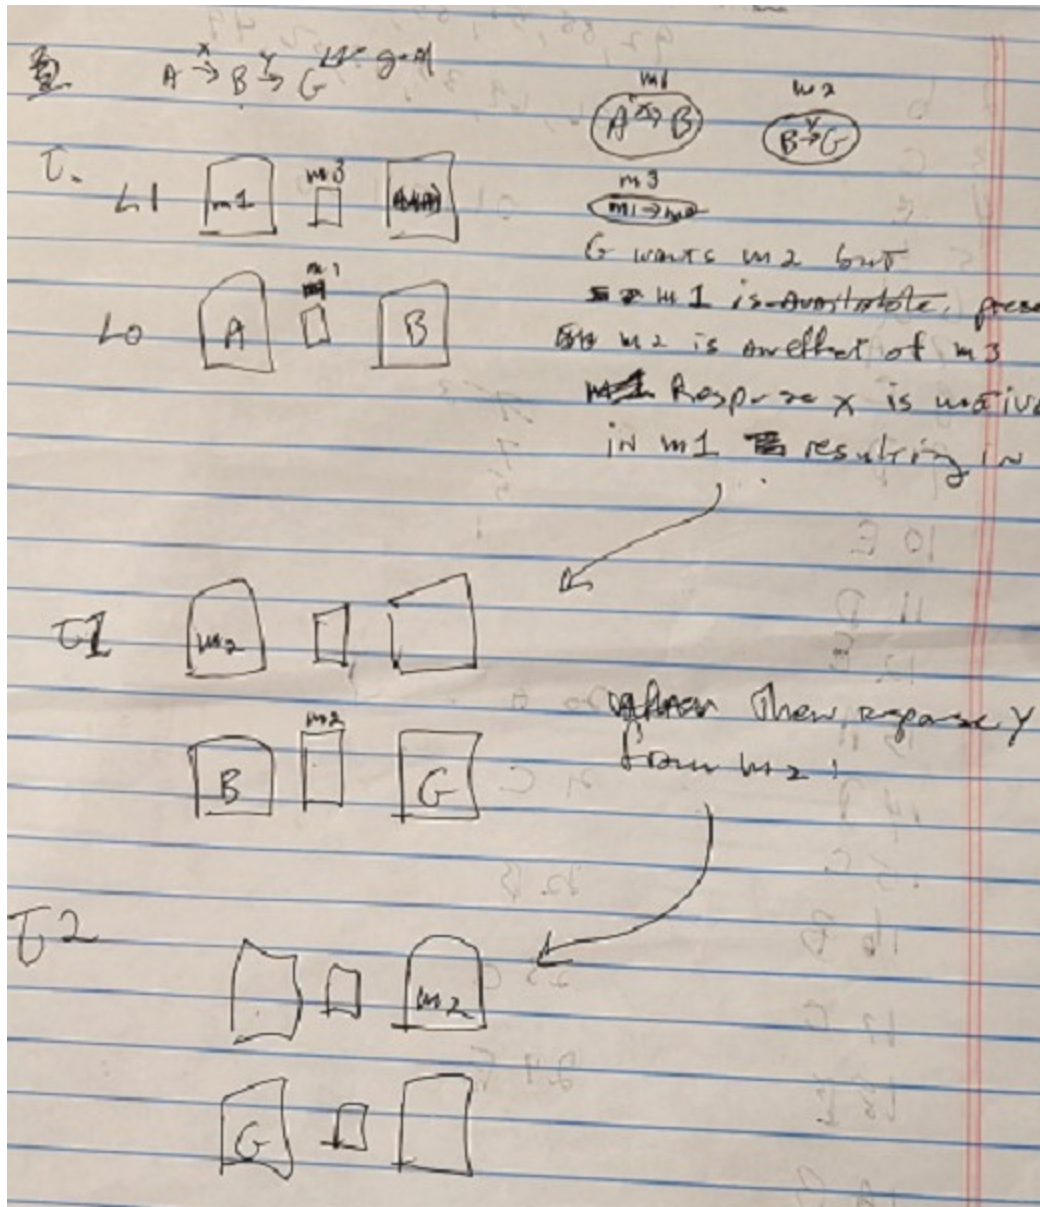 A →x B →y G goal
m1
A →x B
m2
B →y G
m3
m1 → m2
τ.
L1 m1 m3
L0 A m1 B
G wants m2 but
m1 is available, prese
m2 is an effect of m3
Response x is
in m1 resulting in
τ1 m2
B m2 G
Then response Y
from m2
τ2
m2
G